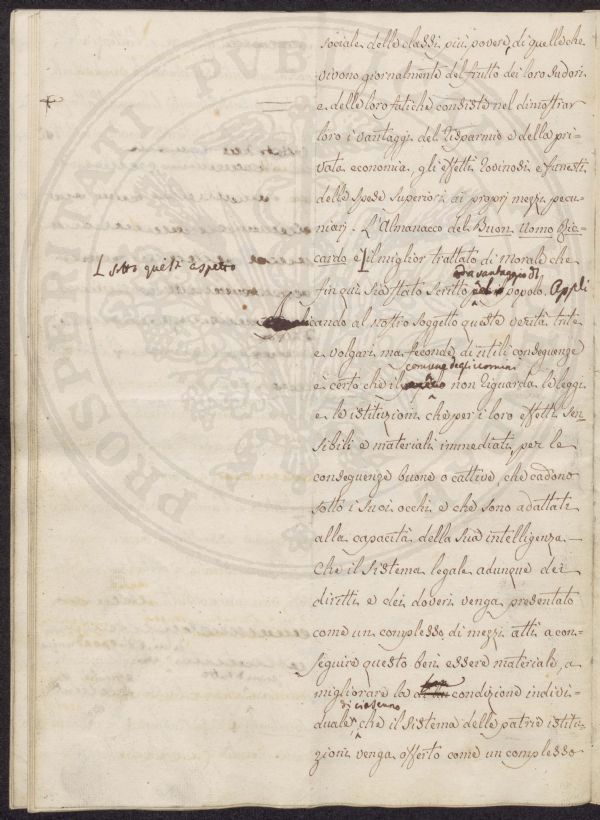 sociale delle classi più povere, di quelle che
vivono giornalmente del frutto dei loro sudori
e delle loro fatiche consiste nel dimostrar
loro i vantaggi del Risparmio e della pri-
vata economia, gli effetti rovinosi e funesti
delle spese superiori ai proprj mezzi pecu-
niarj. L'Almanacco del Buon Uomo Ric-
cardo è il miglior trattato di morale che
sotto questo aspetto
fin quì sia stato scritto pel popolo. Appli
a vantaggio del
cando al nostro soggetto queste verità trite
e volgari, ma feconde di utili conseguenze
comune degli uomini
è certo che il non riguarda le leggi
e le istituzioni che per i loro effetti sen-
sibili e materiali immediati, per le
conseguenze buone o cattive, che cadono
sotto i suoi occhi e che sono adattati
alla capacità della sua intelligenza. —
Che il sistema legale adunque dei
diritti e dei doveri venga presentato
come un complesso di mezzi atti a con-
seguire questo ben essere materiale, a
migliorare la condizione indivi-
di ciascuno
duale, che il sistema delle patrie istitu-
zioni venga offerto come un complesso
PROSPERITATI PVBLI